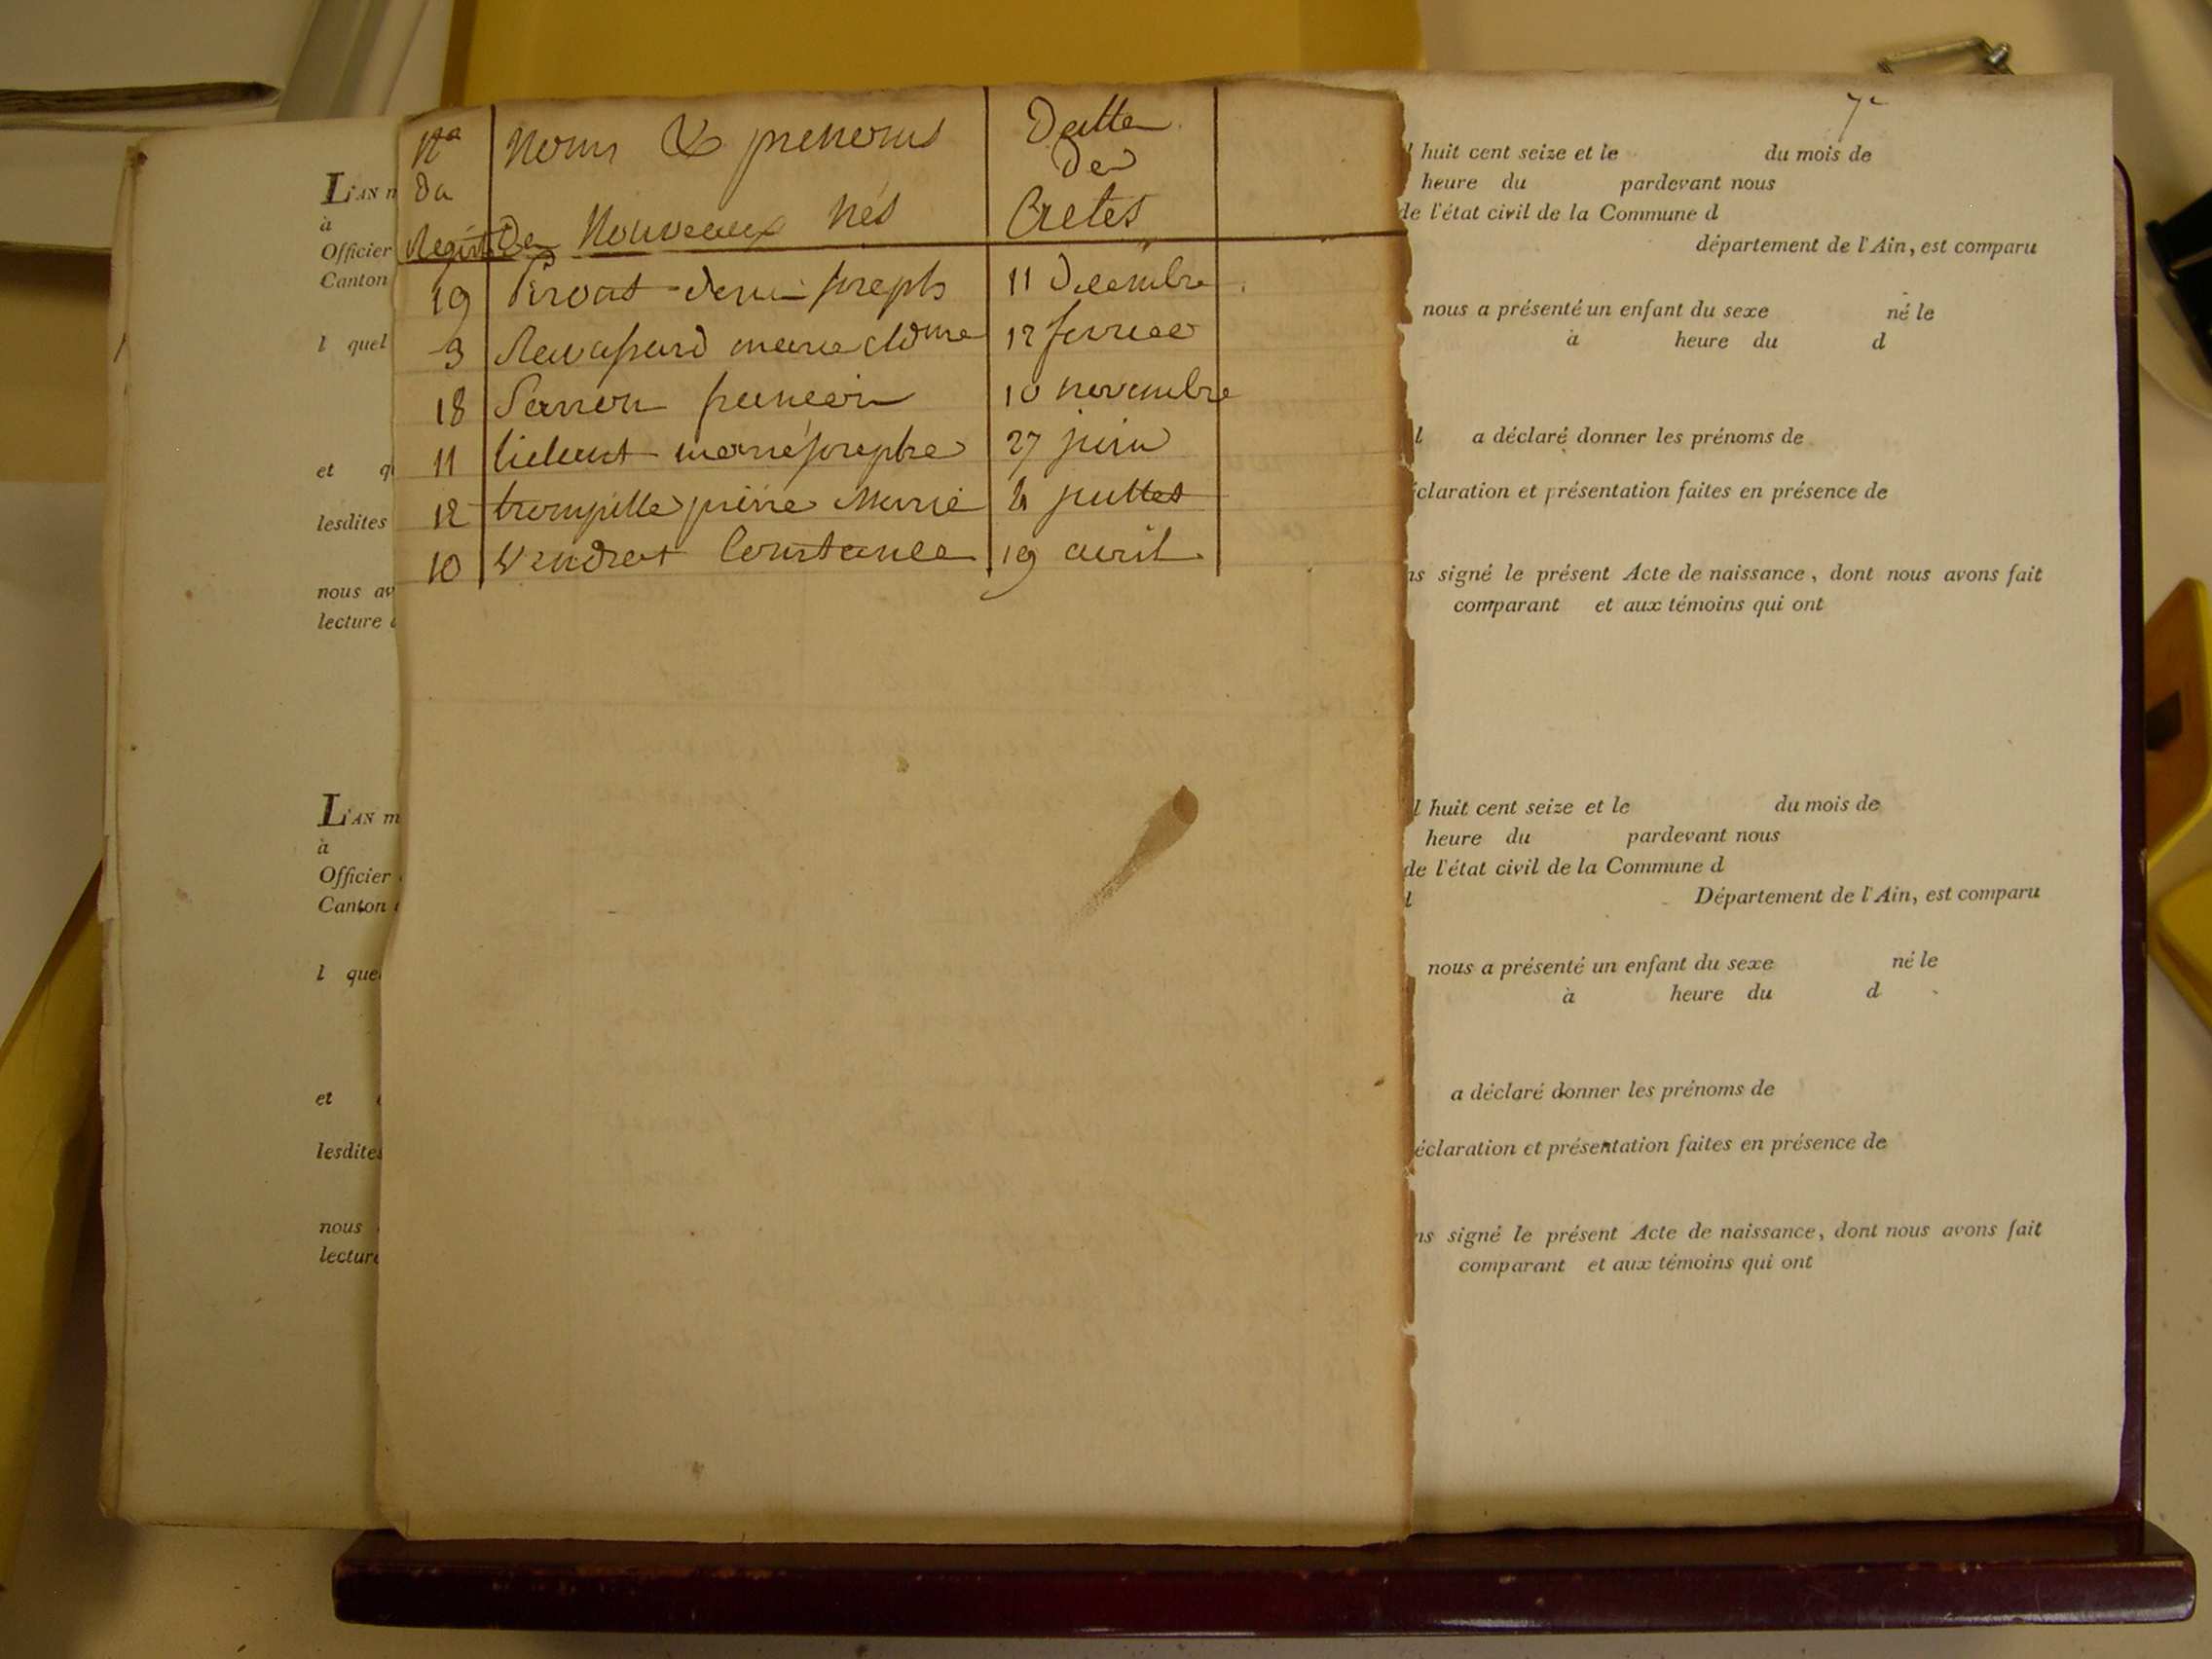 Nos
du
Regist
Noms & prenoms
Des Nouveaux nés
Datte
des
Actes
19 Pirvat denis joseph 11 Decembre
3 Ravassard marie cldme 12 fevrier
18 Sarron francois 10 novembre
11 marie josephe 27 juin
12 trompille pierre Marie juillet
10 Vendrat Constance 19 avril
L'AN m
à
Officier
Canton
l quel
et q
lesdites
nous av
lecture
L'AN m
à
Officier
Canton
l que
et
lesdites
nous
lecture
l huit cent seize et le du mois de
heure du pardevant nous
de l'état civil de la Commune d
département de l'Ain, est comparu
nous a présenté un enfant du sexe né le
à heure du d
l a déclaré donner les prénoms de
claration et présentation faites en présence de
ns signé le présent Acte de naissance, dont nous avons fait
comparant et aux témoins qui ont
l huit cent seize et le du mois de
heure du pardevant nous
de l'état civil de la Commune d
Département de l'Ain, est comparu
nous a présenté un enfant du sexe né le
à heure du d
a déclaré donner les prénoms de
éclaration et présentation faites en présence de
ns signé le présent Acte de naissance, dont nous avons fait
comparant et aux témoins qui ont